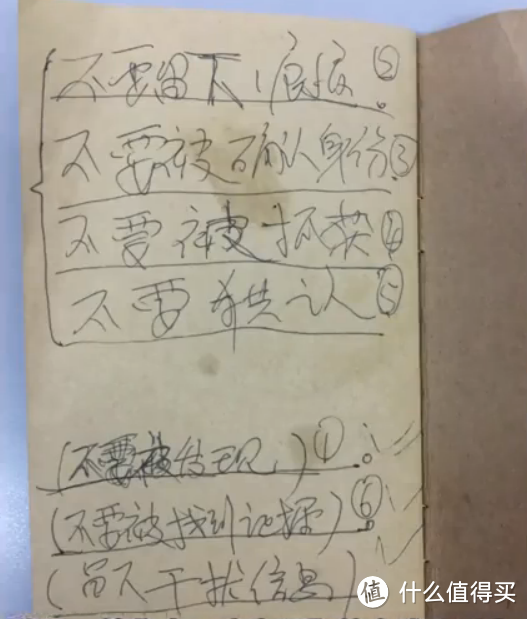 不要留下痕迹②
不要被确认身份③
不要被抓获④
不要供认⑤
(不要被发现)①
(不要被找到证据)⑥
(留下干扰信息)
值 什么值得买